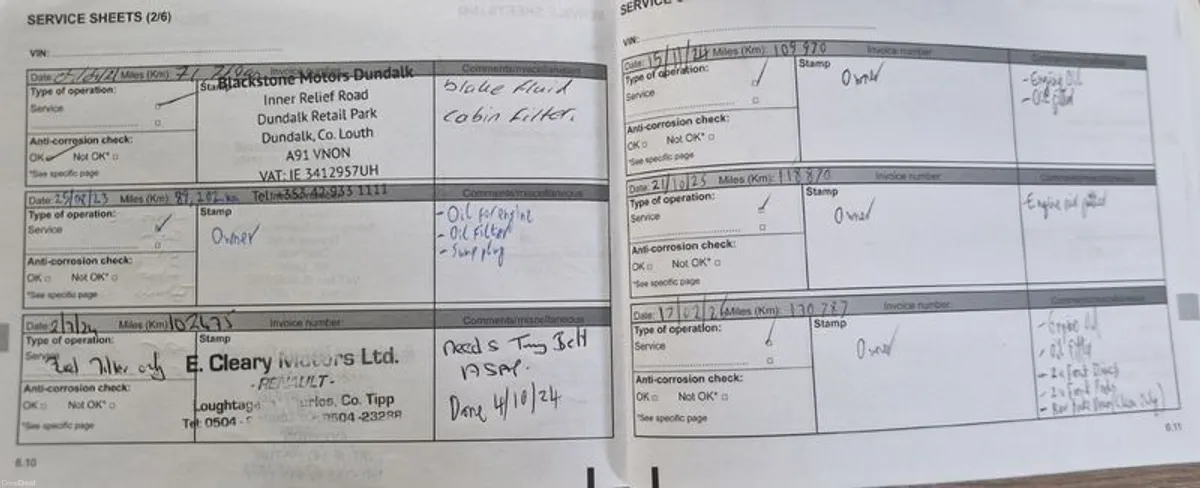 SERVICE SHEETS (2/6)
VIN:
Date: Miles (Km): Invoice number:
Type of operation:
Service
Anti-corrosion check:
OK Not OK*
*See specific page
Stamp
Blackstone Motors Dundalk
Inner Relief Road
Dundalk Retail Park
Dundalk, Co. Louth
A91 VN0N
VAT: IE 3412957UH
Tel: +353 42 933 1111
Comments/miscellaneous
brake fluid
cabin filter.
Date: 25/08/23 Miles (Km): 89,202 km
Type of operation:
Service
Anti-corrosion check:
OK Not OK*
*See specific page
Stamp
Owner
Comments/miscellaneous
- Oil for engine
- Oil Filter
- Sump plug
Date: 2/7/24 Miles (Km): 102475 Invoice number:
Type of operation:
Service
Fuel Filter only
Anti-corrosion check:
OK Not OK*
*See specific page
Stamp
E. Cleary Motors Ltd.
- RENAULT -
Loughtage Co. Tipp
Tel: 0504 - 0504 -23288
Comments/miscellaneous
needs Timing Belt
ASAP.
Done 4/10/24
6.10
SERVICE
VIN:
Date: 15/11/24 Miles (Km): 109970 Invoice number
Type of operation:
Service
Anti-corrosion check:
OK Not OK*
*See specific page
Stamp
Owner
Comments/miscellaneous
- Engine Oil
- Oil
Date: 21/10/25 Miles (Km): 118870 Invoice number:
Type of operation:
Service
Anti-corrosion check:
OK Not OK*
*See specific page
Stamp
Owner
Comments/miscellaneous
- Engine
Date: 17/02/26 Miles (Km): 130787 Invoice number:
Type of operation:
Service
Anti-corrosion check:
OK Not OK*
*See specific page
Stamp
Owner
Comments/miscellaneous
- Engine Oil
- Oil
- 2x Front Discs
- 2x Front Pads
6.11
DoneDeal